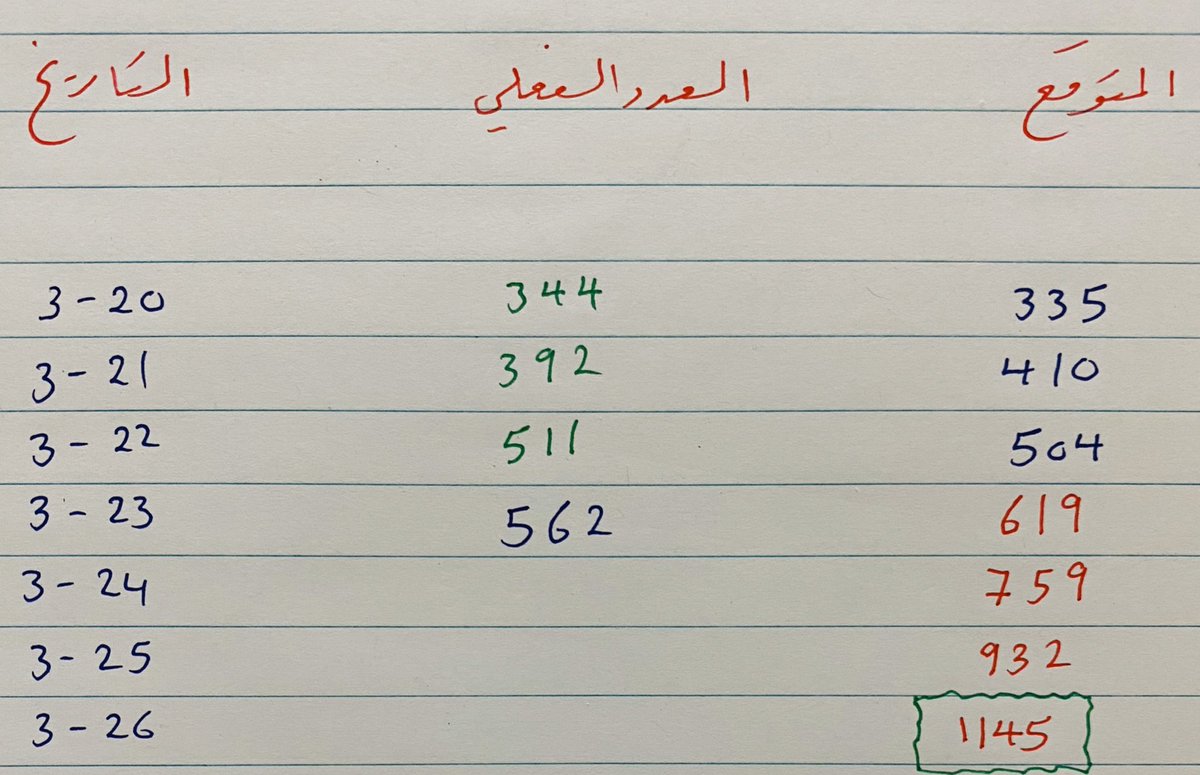 التاريخ العدد الفعلي المتوقع
3-20 344 335
3-21 392 410
3-22 511 504
3-23 562 619
3-24 759
3-25 932
3-26 1145